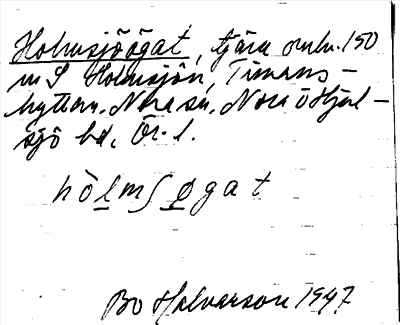 Holmsjöögat, tjärn omkr. 150
m S Holmsjön, Timans-
hyttan. Nora sn, Nora o Hjul-
sjö bd, Ör. l.
hòlmʃøgat
Bo Halvarson 1947